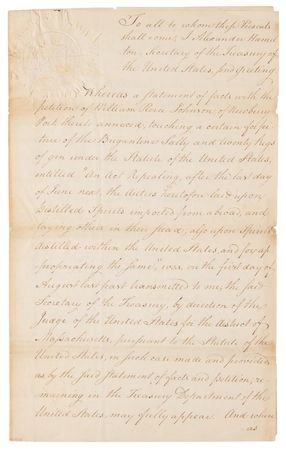 To all to whom these Presents
shall come, I Alexander Hamil
ton, Secretary of the Treasury of
the United States, send greeting.
Whereas a statement of facts with the
petition of William Peirce Johnson of Newbury
Port thereto annexed, touching a certain forfei
ture of the Brigantine Sally and twenty kegs
of gin under the Statute of the United States,
entitled "An Act Repealing, after the last day
of June next, the duties heretofore laid upon
Distilled Spirits imported from abroad, and
laying others in their stead; also upon Spirits
distilled within the United States, and for ap
propriating the same", was, on the first day of
August last past transmitted to me, the said
Secretary of the Treasury, by direction of the
Judge of the United States for the district of
Massachusetts, pursuant to the Statute of the
United States, in such case made and provided,
as by the said Statement of facts and petition, re
maining in the Treasury Department of the
United States, may fully appear. And where
as